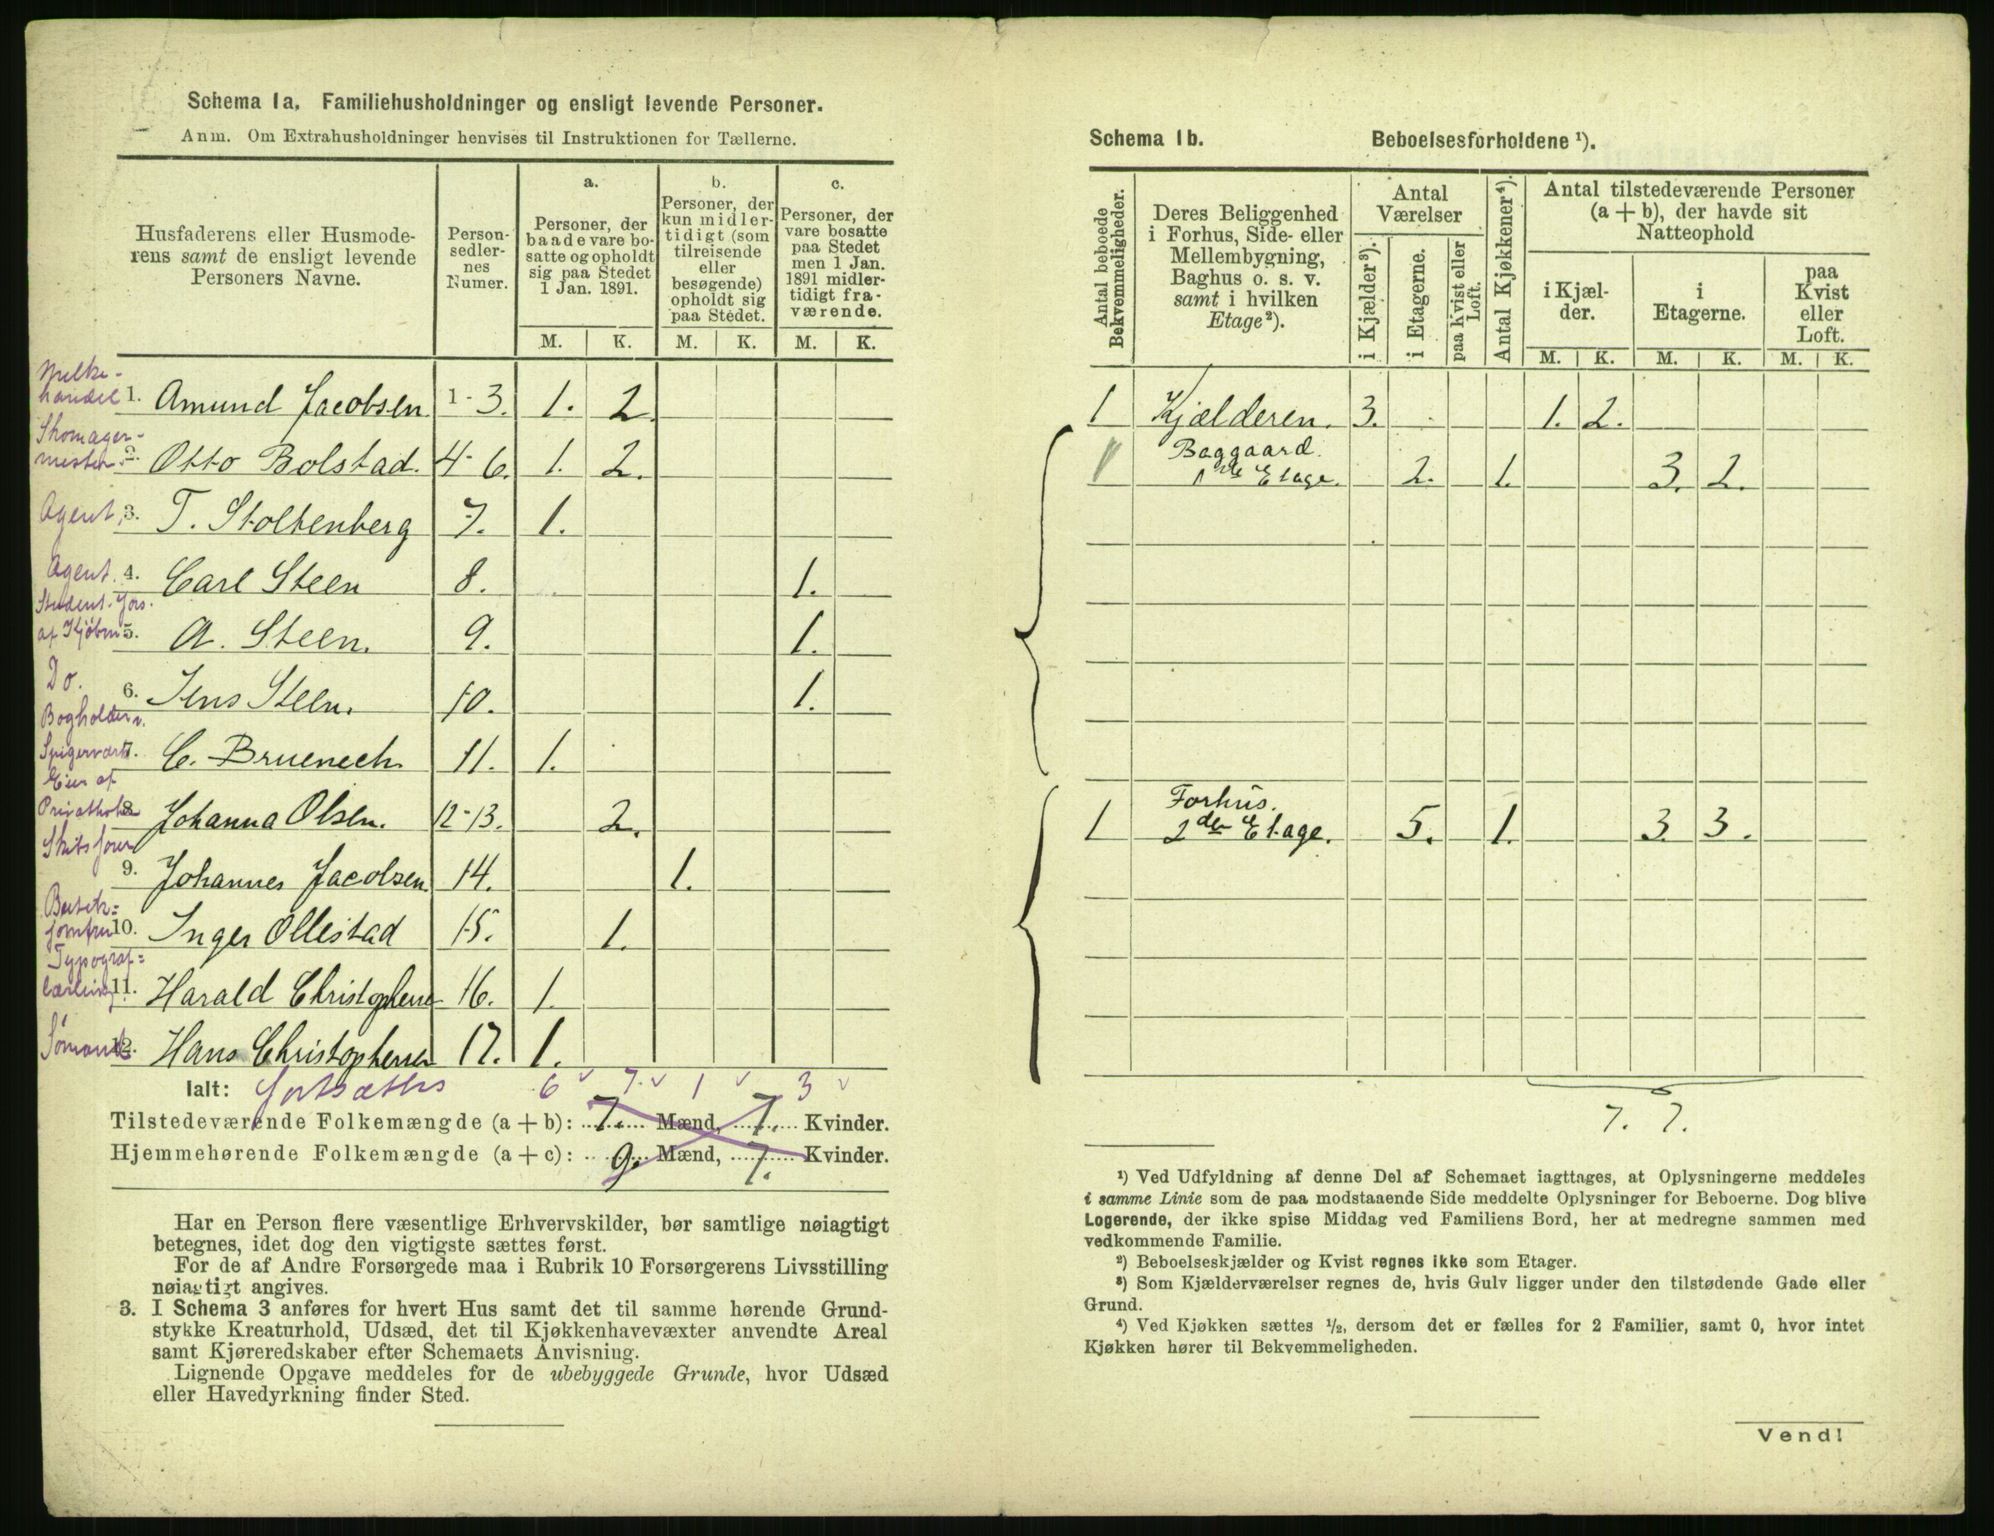 Schema 1a. Familiehusholdninger og ensligt levende Personer.
Anm. Om Extrahusholdninger henvises til Instruktionen for Tællerne.
Husfaderens eller Husmode-
rens samt de ensligt levende
Personers Navne.
Person-
sedler-
nes
Numer.
a.
Personer, der
baade vare bo-
satte og opholdt
sig paa Stedet
1 Jan. 1891.
b.
Personer, der
kun midler-
tidigt (som
tilreisende
eller
besøgende)
opholdt sig
paa Stedet.
c.
Personer, der
vare bosatte
paa Stedet
men 1 Jan.
1891 midler-
tidigt fra-
værende.
M. K. M. K. M. K.
Melke-
handel 1. Amund Jacobsen 1-3. 1. 2
Skomager-
mester 2. Otto Bolstad. 4-6. 1. 2.
Agent, 3. T. Stoltenberg 7. 1.
Agent. 4. Carl Steen 8. 1.
Student. fors.
af Kjøbm 5. A. Steen. 9. 1.
Do. 6. Jens Steen. 10. 1.
Bogholder v.
Spigerværk 7. C. Bruenech 11. 1.
Eier af
Privathotel 8. Johanna Olsen. 12-13. 2.
9. Johannes Jacobsen 14. 1.
Butik=
jomfru 10. Inger Ollestad 15. 1.
Typograf=
lærling 11. Harald Christophersen 16. 1.
Sømand 12. Hans Christophersen 17. 1.
Ialt: fortsættes 6 7 1 3
Tilstedeværende Folkemængde (a + b): 7. Mænd, 7. Kvinder.
Hjemmehørende Folkemængde (a + c): 9. Mænd, 7. Kvinder.
Har en Person flere væsentlige Erhvervskilder, bør samtlige nøiagtigt
betegnes, idet dog den vigtigste sættes først.
For de af Andre Forsørgede maa i Rubrik 10 Forsørgerens Livsstilling
nøiagtigt angives.
3. I Schema 3 anføres for hvert Hus samt det til samme hørende Grund-
stykke Kreaturhold, Udsæd, det til Kjøkkenhavevæxter anvendte Areal
samt Kjøreredskaber efter Schemaets Anvisning.
Lignende Opgave meddeles for de ubebyggede Grunde, hvor Udsæd
eller Havedyrkning finder Sted.
Schema 1b. Beboelsesforholdene ¹).
Antal beboede
Bekvemmeligheder.
Deres Beliggenhed
i Forhus, Side- eller
Mellembygning,
Baghus o. s. v.
samt i hvilken
Etage²).
Antal
Værelser
i Kjælder³).
i Etagerne.
paa Kvist eller
Loft.
Antal Kjøkkener⁴).
Antal tilstedeværende Personer
(a + b), der havde sit
Natteophold
i Kjæl-
der.
i
Etagerne.
paa
Kvist
eller
Loft.
M. K. M. K. M. K.
1 Kjælderen. 3. 1. 2.
1 Baggaard.
1ste Etage. 2. 1. 3. 2.
1 Forhus.
2den Etage. 5. 1. 3. 3.
7. 7.
¹) Ved Udfyldning af denne Del af Schemaet iagttages, at Oplysningerne meddeles
i samme Linie som de paa modstaaende Side meddelte Oplysninger for Beboerne. Dog blive
Logerende, der ikke spise Middag ved Familiens Bord, her at medregne sammen med
vedkommende Familie.
²) Beboelseskjælder og Kvist regnes ikke som Etager.
³) Som Kjælderværelser regnes de, hvis Gulv ligger under den tilstødende Gade eller
Grund.
⁴) Ved Kjøkken sættes ½, dersom det er fælles for 2 Familier, samt 0, hvor intet
Kjøkken hører til Bekvemmeligheden.
Vend!